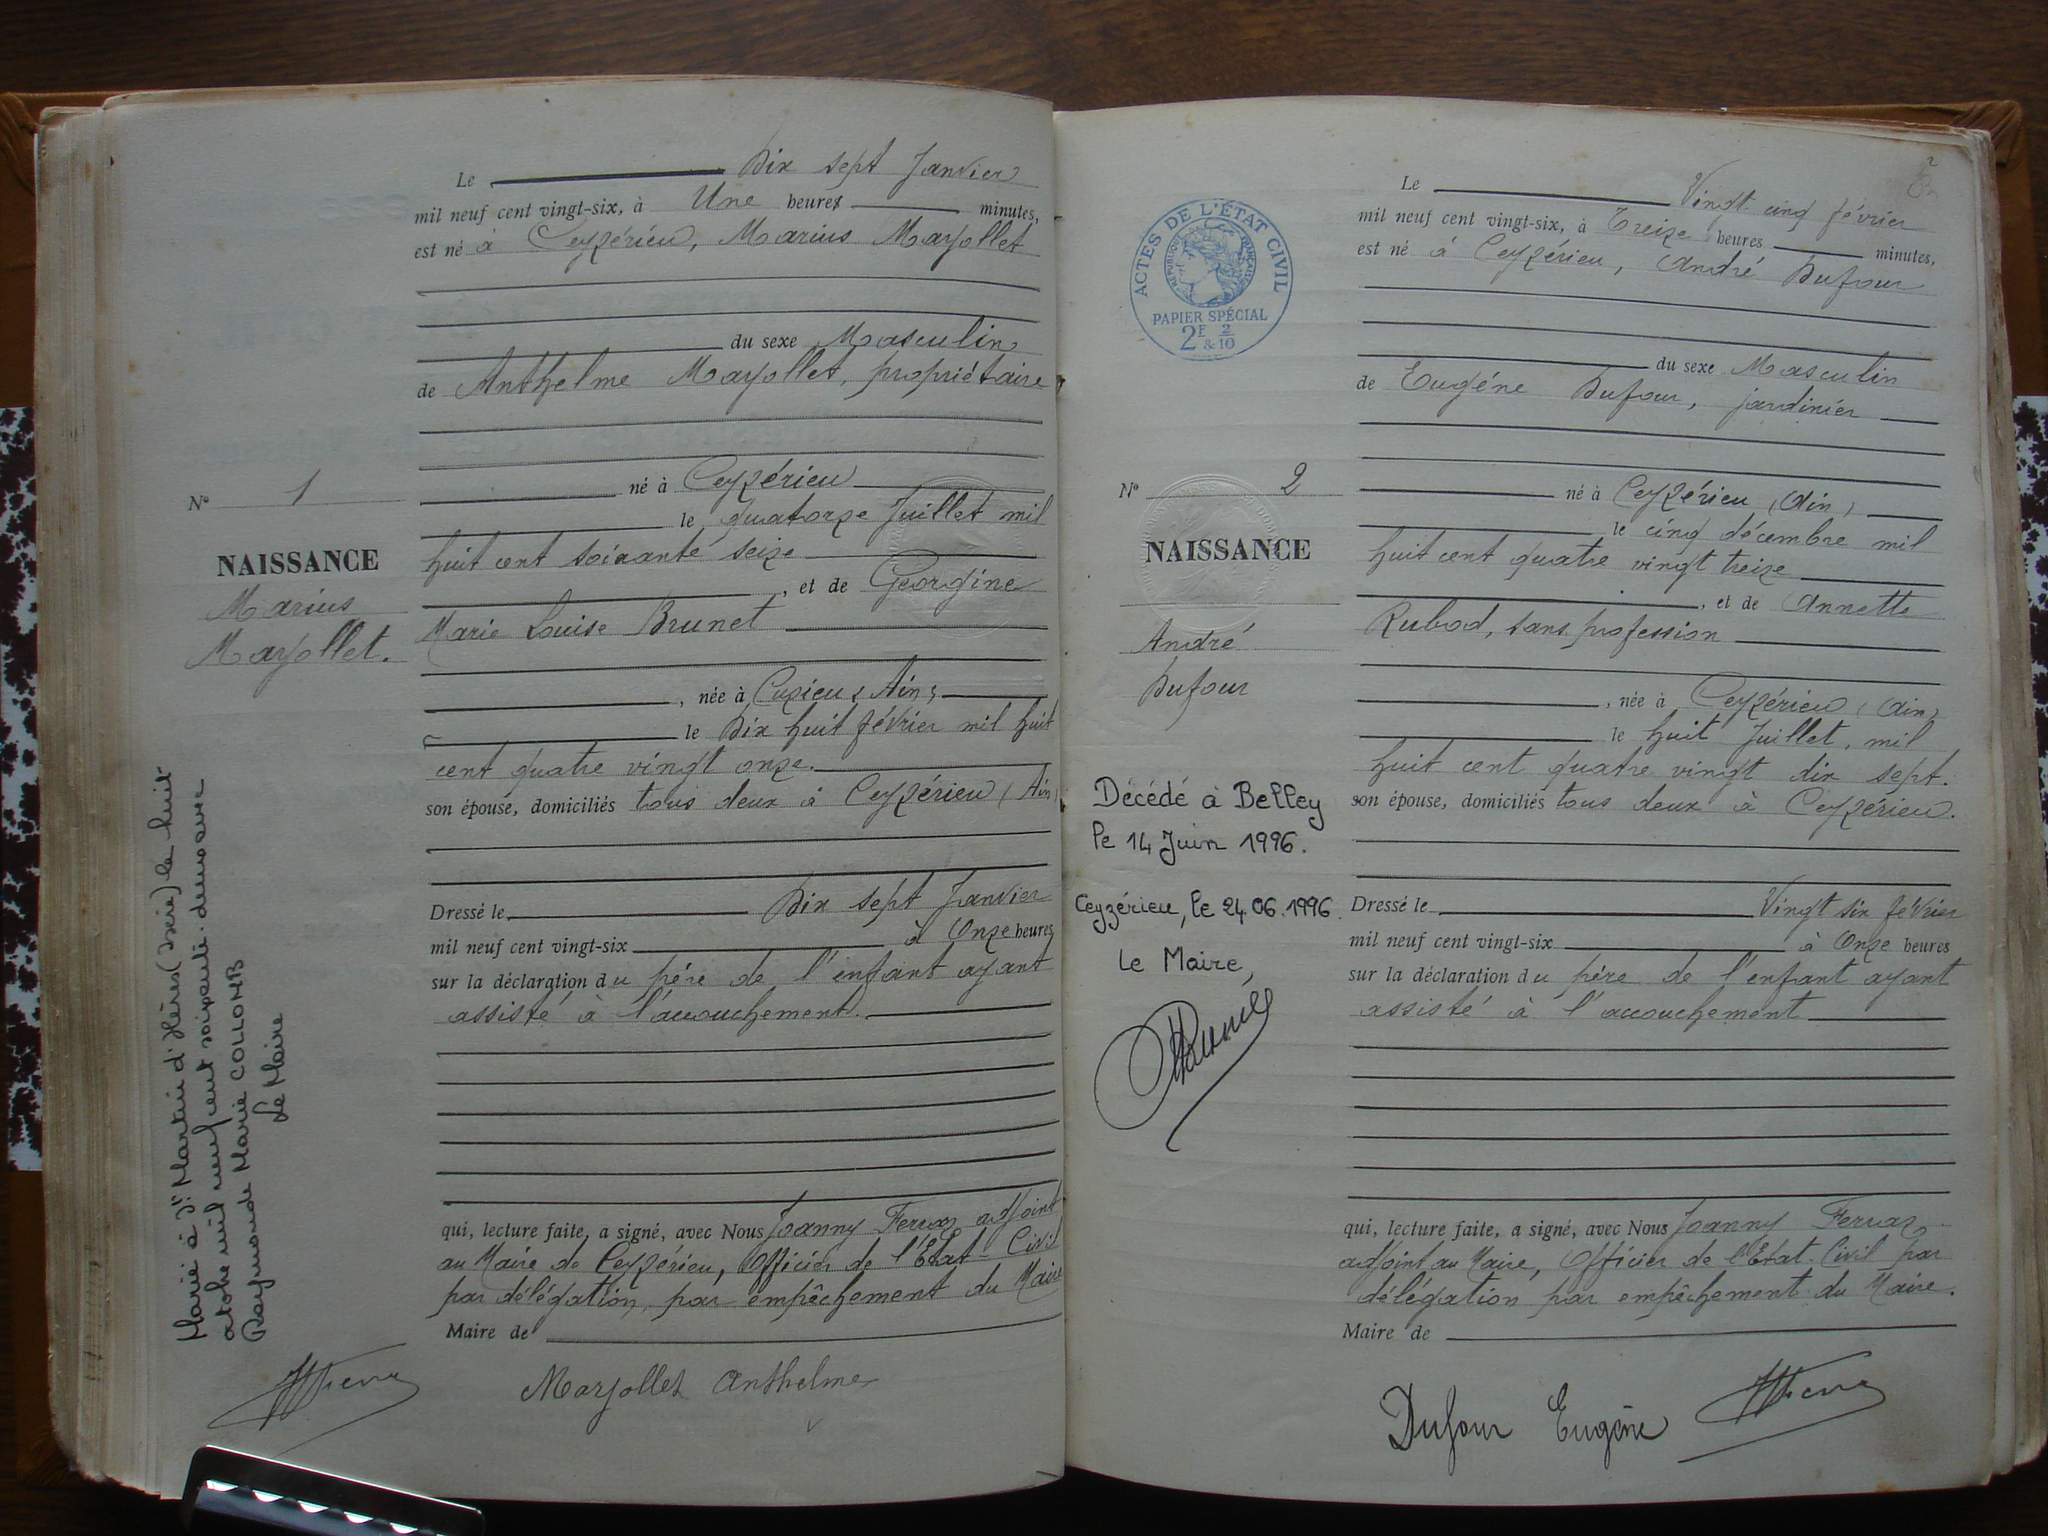 Le Dix sept Janvier
mil neuf cent vingt-six, à Une heures minutes,
est né à Ceyzérieu, Marius Mayollet
du sexe Masculin
de Anthelme Mayollet, propriétaire
né à Ceyzérieu
le quatorze Juillet mil
huit cent soixante seize
, et de Georgine
Marie Louise Brunet
, née à Cuzieu (Ain)
le Dix huit février mil huit
cent quatre vingt onze.
son épouse, domiciliés tous deux à Ceyzérieu (Ain)
Dressé le Dix sept Janvier
mil neuf cent vingt-six à Onze heures
sur la déclaration du père de l'enfant ayant
assisté à l'accouchement.
qui, lecture faite, a signé, avec Nous Joanny Ferraz adjoint
au Maire de Ceyzérieu, Officier de l'État-Civil
par délégation, par empêchement du Maire
Maire de
Mayollet Anthelme
N° 1
NAISSANCE
Marius
Mayollet.
Marié à St Martin d'Hères (Isère) le huit
octobre mil neuf cent soixante
Raymonde Marie COLLOMB
Le Maire
ACTES DE L'ÉTAT CIVIL
RÉPUBLIQUE FRANÇAISE
PAPIER SPÉCIAL
2F & 2/10
N° 2
NAISSANCE
André
Dufour
Décédé à Belley
le 14 Juin 1996.
Ceyzérieu, le 24.06.1996.
Le Maire,
2
Le Vingt cinq février
mil neuf cent vingt-six, à Treize heures minutes,
est né à Ceyzérieu, André Dufour
du sexe Masculin
de Eugène Dufour, jardinier
né à Ceyzérieu (Ain)
le cinq décembre mil
huit cent quatre vingt treize
, et de Annette
Rubod, sans profession
, née à Ceyzérieu (Ain)
le huit Juillet, mil
huit cent quatre vingt dix sept.
son épouse, domiciliés tous deux à Ceyzérieu.
Dressé le Vingt six février
mil neuf cent vingt-six à Onze heures
sur la déclaration du père de l'enfant ayant
assisté à l'accouchement
qui, lecture faite, a signé, avec Nous Joanny Ferraz
adjoint au Maire, Officier de l'Etat-Civil par
délégation par empêchement du Maire.
Maire de
Dufour Eugène